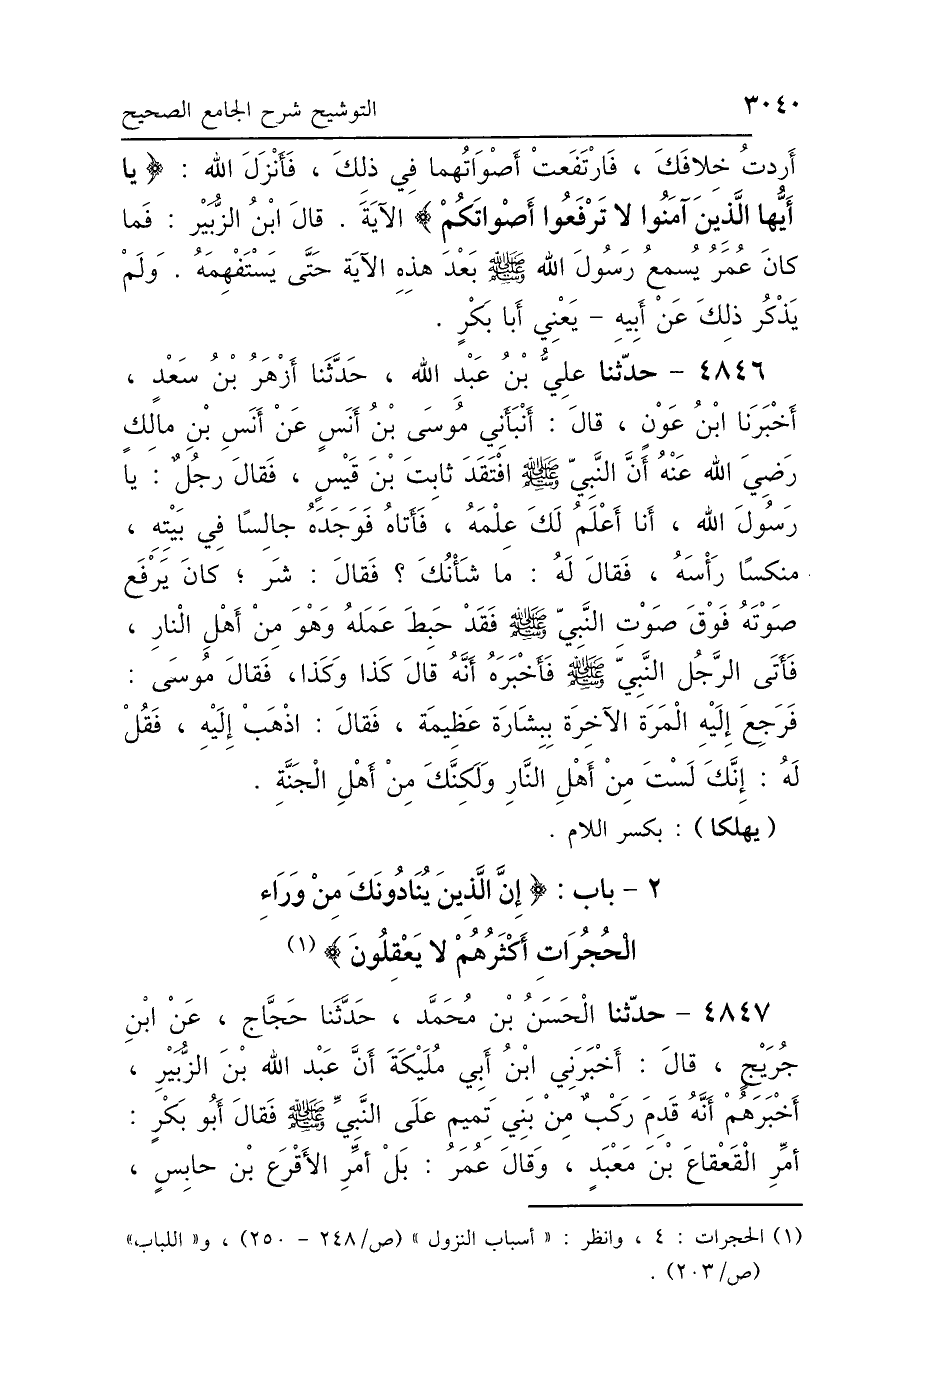 ٣٠٤٠ التوشيح شرح الجامع الصحيح
أَردتُ خلافَكَ ، فَارْتَفَعتْ أَصْوَاتُهما فِي ذلكَ ، فَأَنْزَلَ الله : ﴿ يا
أَيُّها الَّذينَ آمَنُوا لا تَرْفَعُوا أصْواتَكُمْ ﴾ الآيَةَ . قالَ ابْنُ الزُّبَيْر : فَما
كانَ عُمَرُ يُسمعُ رَسُولَ الله ﷺ بَعْدَ هذهِ الآيَة حَتَّى يَسْتَفْهِمَهُ . وَلَمْ
يَذْكُر ذلكَ عَنْ أَبيهِ - يَعْنِي أَبا بَكْرٍ .
٤٨٤٦ - حدّثنا عليُّ بْنُ عَبْدِ الله ، حَدَّثَنا أَزْهَرُ بْنُ سَعْدٍ ،
أَخْبَرَنا ابْنُ عَوْنٍ ، قالَ : أَنْبَأَنِي مُوسَى بْنُ أَنَسٍ عَنْ أَنَسِ بْنِ مالِكٍ
رَضِيَ الله عَنْهُ أَنَّ النَّبِيّ ﷺ افْتَقَدَ ثابِتَ بْنَ قَيْسٍ ، فَقالَ رجُلٌ : يا
رَسُولَ الله ، أَنا أَعْلَمُ لَكَ عِلْمَهُ ، فَأَتاهُ فَوَجَدَهُ جالسًا في بَيْتِهِ ،
منكسًا رَأْسَهُ ، فَقالَ لَهُ : ما شَأْنُكَ ؟ فَقالَ : شَر ؛ كانَ يَرْفَع
صَوْتَهُ فَوْقَ صَوْتِ النَّبِيّ ﷺ فَقَدْ حَبِطَ عَمَلهُ وَهْوَ مِنْ أَهْلِ النارِ ،
فَأَتَى الرَّجُل النَّبِيّ ﷺ فَأَخْبَرَهُ أَنَّهُ قالَ كَذا وَكَذا، فَقالَ مُوسَى :
فَرَجعَ إِلَيْهِ الْمَرَةَ الآخِرَةَ بِبِشَارَة عَظِيمَة ، فَقالَ : اذْهَبْ إِلَيْهِ ، فَقُلْ
لَهُ : إِنَّكَ لَسْتَ مِنْ أَهْلِ النَّارِ وَلَكِنَّكَ مِنْ أَهْلِ الْجَنَّةِ .
( يهلكا ) : بكسر اللام .
٢ - باب : ﴿ إِنَّ الَّذِينَ يُنَادُونَكَ مِنْ وَرَاءِ
الْحُجُرَاتِ أَكْثَرُهُمْ لا يَعْقِلُونَ ﴾ (١)
٤٨٤٧ - حدّثنا الْحَسَنُ بْنِ مُحَمَّد ، حَدَّثَنا حَجَّاج ، عَنْ ابْنِ
جُرَيْجٍ ، قالَ : أَخْبَرَنِي ابْنُ أَبِي مُلَيْكَةَ أَنَّ عَبْد الله بْنَ الزُّبَيْرِ ،
أَخْبَرَهُمْ أَنَّهُ قَدِمَ رَكْبٌ مِنْ بَنِي تَمِيم عَلَى النَّبِيِّ ﷺ فَقالَ أَبُو بَكْرٍ :
أمِّرِ الْقَعْقاعَ بْنَ مَعْبَدٍ ، وَقالَ عُمَرُ : بَلْ أمِّرِ الأَقْرَعَ بْنَ حابِسٍ ،
(١) الحجرات : ٤ ، وانظر : « أسباب النزول » (ص/٢٤٨ - ٢٥٠) ، و« اللباب»
(ص/٢٠٣) .